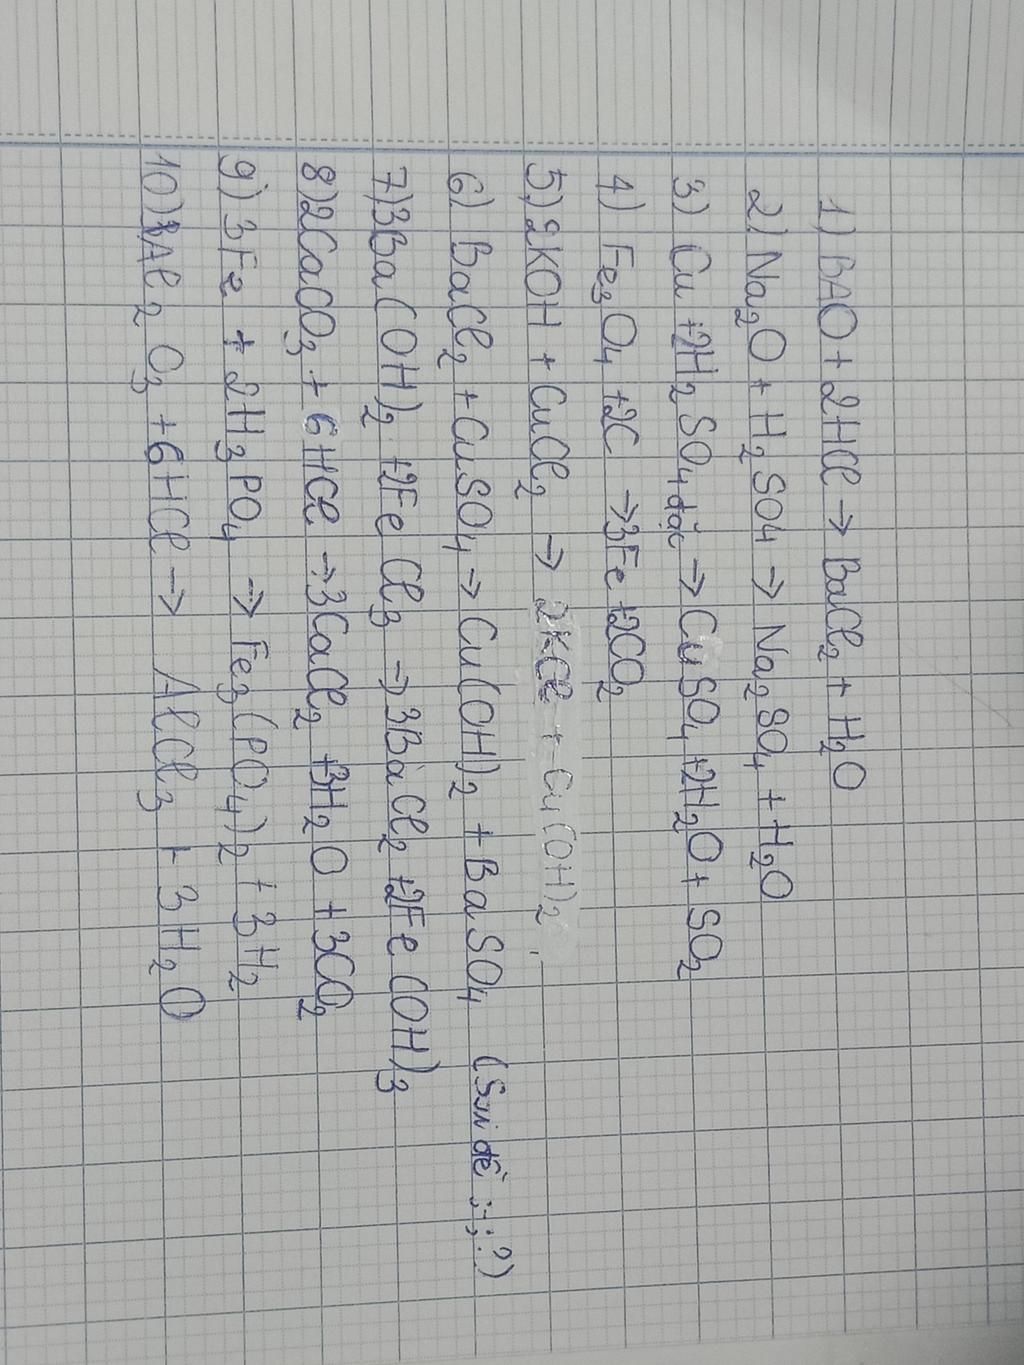 1) BAO + 2HCl → BaCl₂ + H₂O
2) Na₂O + H₂SO4 → Na₂SO₄ + H₂O
3) Cu + 2H₂SO₄ đặc → CuSO₄ + 2H₂O + SO₂
4) Fe₃O₄ + 2C → 3Fe + 2CO₂
5) 2KOH + CuCl₂ → 2KCl + Cu(OH)₂
6) BaCl₂ + CuSO₄ → Cu(OH)₂ + BaSO₄ (Sai đề ;-;?)
7) 3Ba(OH)₂ + 2FeCl₃ → 3BaCl₂ + 2Fe(OH)₃
8) 2CaCO₃ + 6HCl → 3CaCl₂ + 3H₂O + 3CO₂
9) 3Fe + 2H₃PO₄ → Fe₃(PO₄)₂ + 3H₂
10) Al₂O₃ + 6HCl → AlCl₃ + 3H₂O